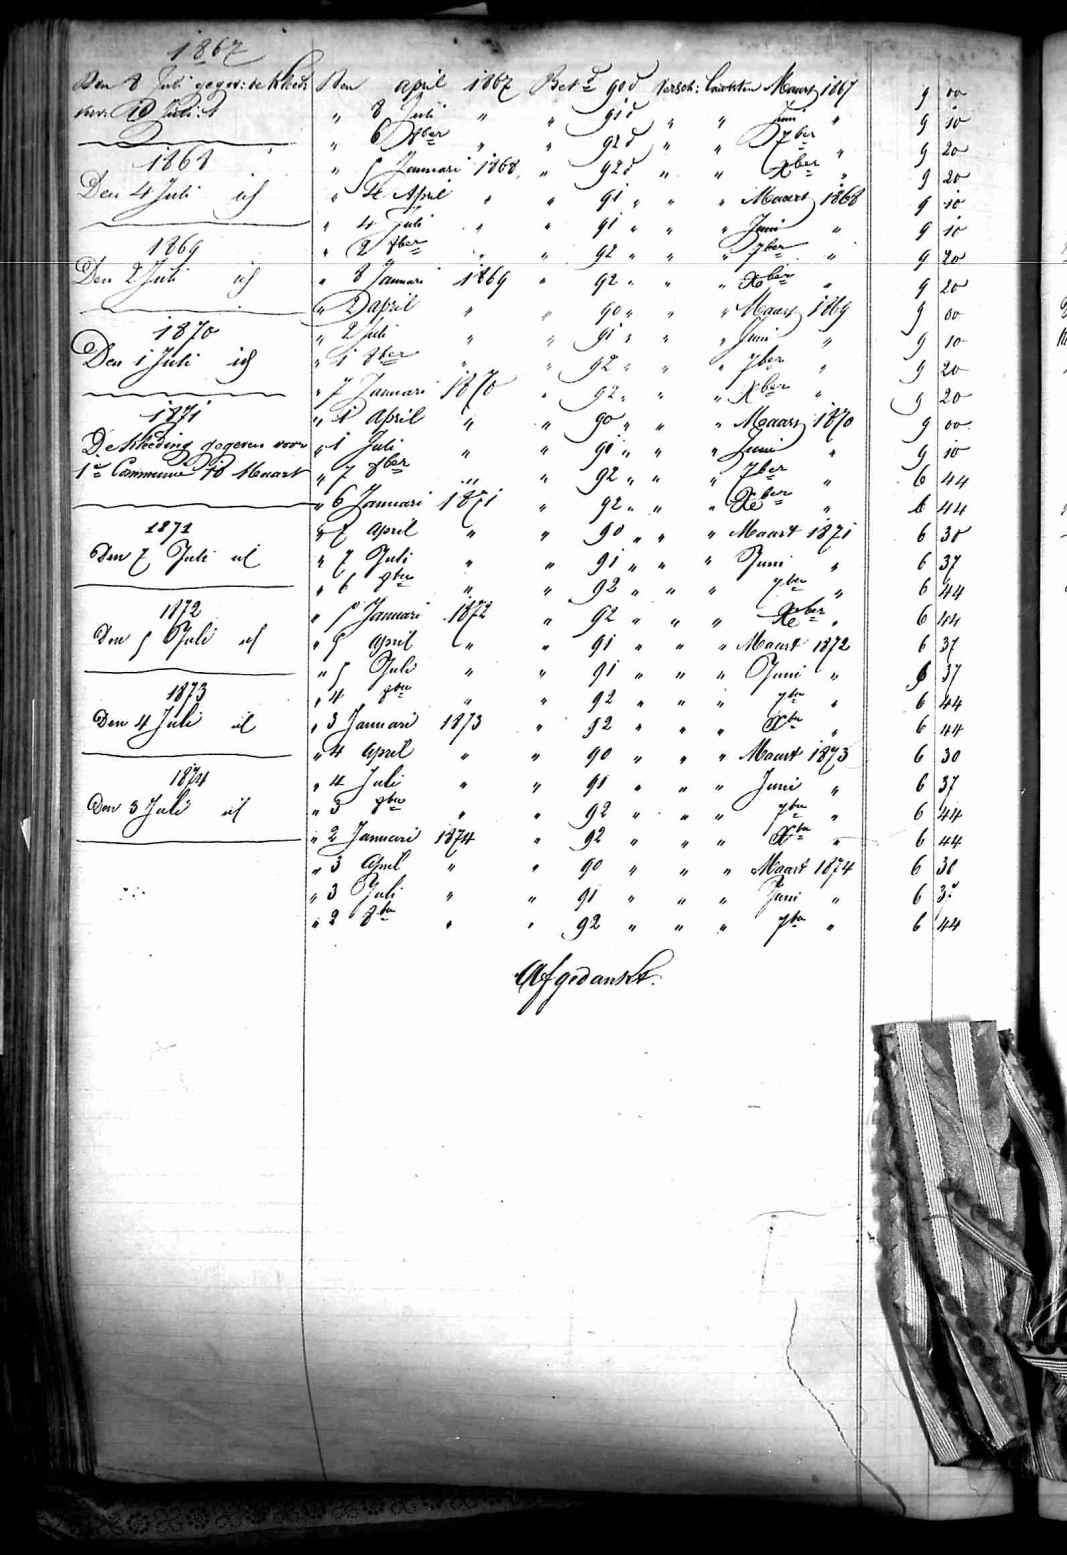 1867
Den 8 Juli gegev: de kleed:
voor 10 Juli: 1
1868
Den 4 Juli id
1869
Den 2 Juli id
1870
Den 1 Juli id
1871
De kleeding gegeven voor
1e Commune 18 Maart
1871
Den 7 Juli id
1872
Den 5 Juli id
1873
Den 4 Juli id
1874
Den 3 Juli id
Den april 1867 Bet d 90 d versch: lachten Maart 1867 9 00
" 8 Juli " " 91 d " " Juni " 9 10
" 6 8ber " " 92 d " " 7ber " 9 20
" 5 Januari 1868 " 92 d " " Xber " 9 20
" 4 April " " 91 " " " Maart 1868 9 10
" 4 Juli " " 91 " " " Juni " 9 10
" 2 8ber " " 92 " " " 7ber " 9 20
" 8 Januari 1869 " 92 " " " Xber " 9 20
" 2 april " " 90 " " " Maart 1869 9 00
" 2 Juli " " 91 " " " Juni " 9 10
" 1 8ber " " 92 " " " 7ber " 9 20
" 7 Januari 1870 " 92 " " " Xber " 9 20
" 1 April " " 90 " " " Maart 1870 9 00
" 1 Juli " " 91 " " " Juni " 9 10
" 7 8ber " " 92 " " " 7ber " 6 44
" 6 Januari 1871 " 92 " " " Xber " 6 44
" 7 April " " 90 " " " Maart 1871 6 30
" 7 Juli " " 91 " " " Juni " 6 37
" 6 8ber " " 92 " " " 7ber " 6 44
" 5 Januari 1872 " 92 " " " Xber " 6 44
" 5 April " " 91 " " " Maart 1872 6 37
" 5 Juli " " 91 " " " Juni " 6 37
" 4 8ber " " 92 " " " 7ber " 6 44
" 3 Januari 1873 " 92 " " " Xber " 6 44
" 4 April " " 90 " " " Maart 1873 6 30
" 4 Juli " " 91 " " " Juni " 6 37
" 3 8ber " " 92 " " " 7ber " 6 44
" 2 Januari 1874 " 92 " " " Xber " 6 44
" 3 April " " 90 " " " Maart 1874 6 30
" 3 Juli " " 91 " " " Juni " 6 37
" 2 8ber " " 92 " " " 7ber " 6 44
Afgedankt.